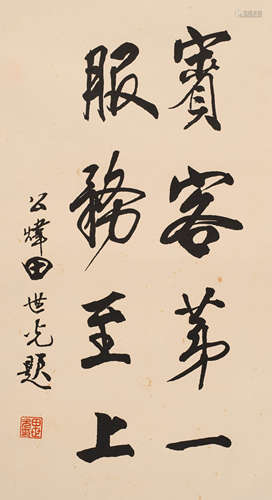 賓客第一
服務至上
公煒田世光題